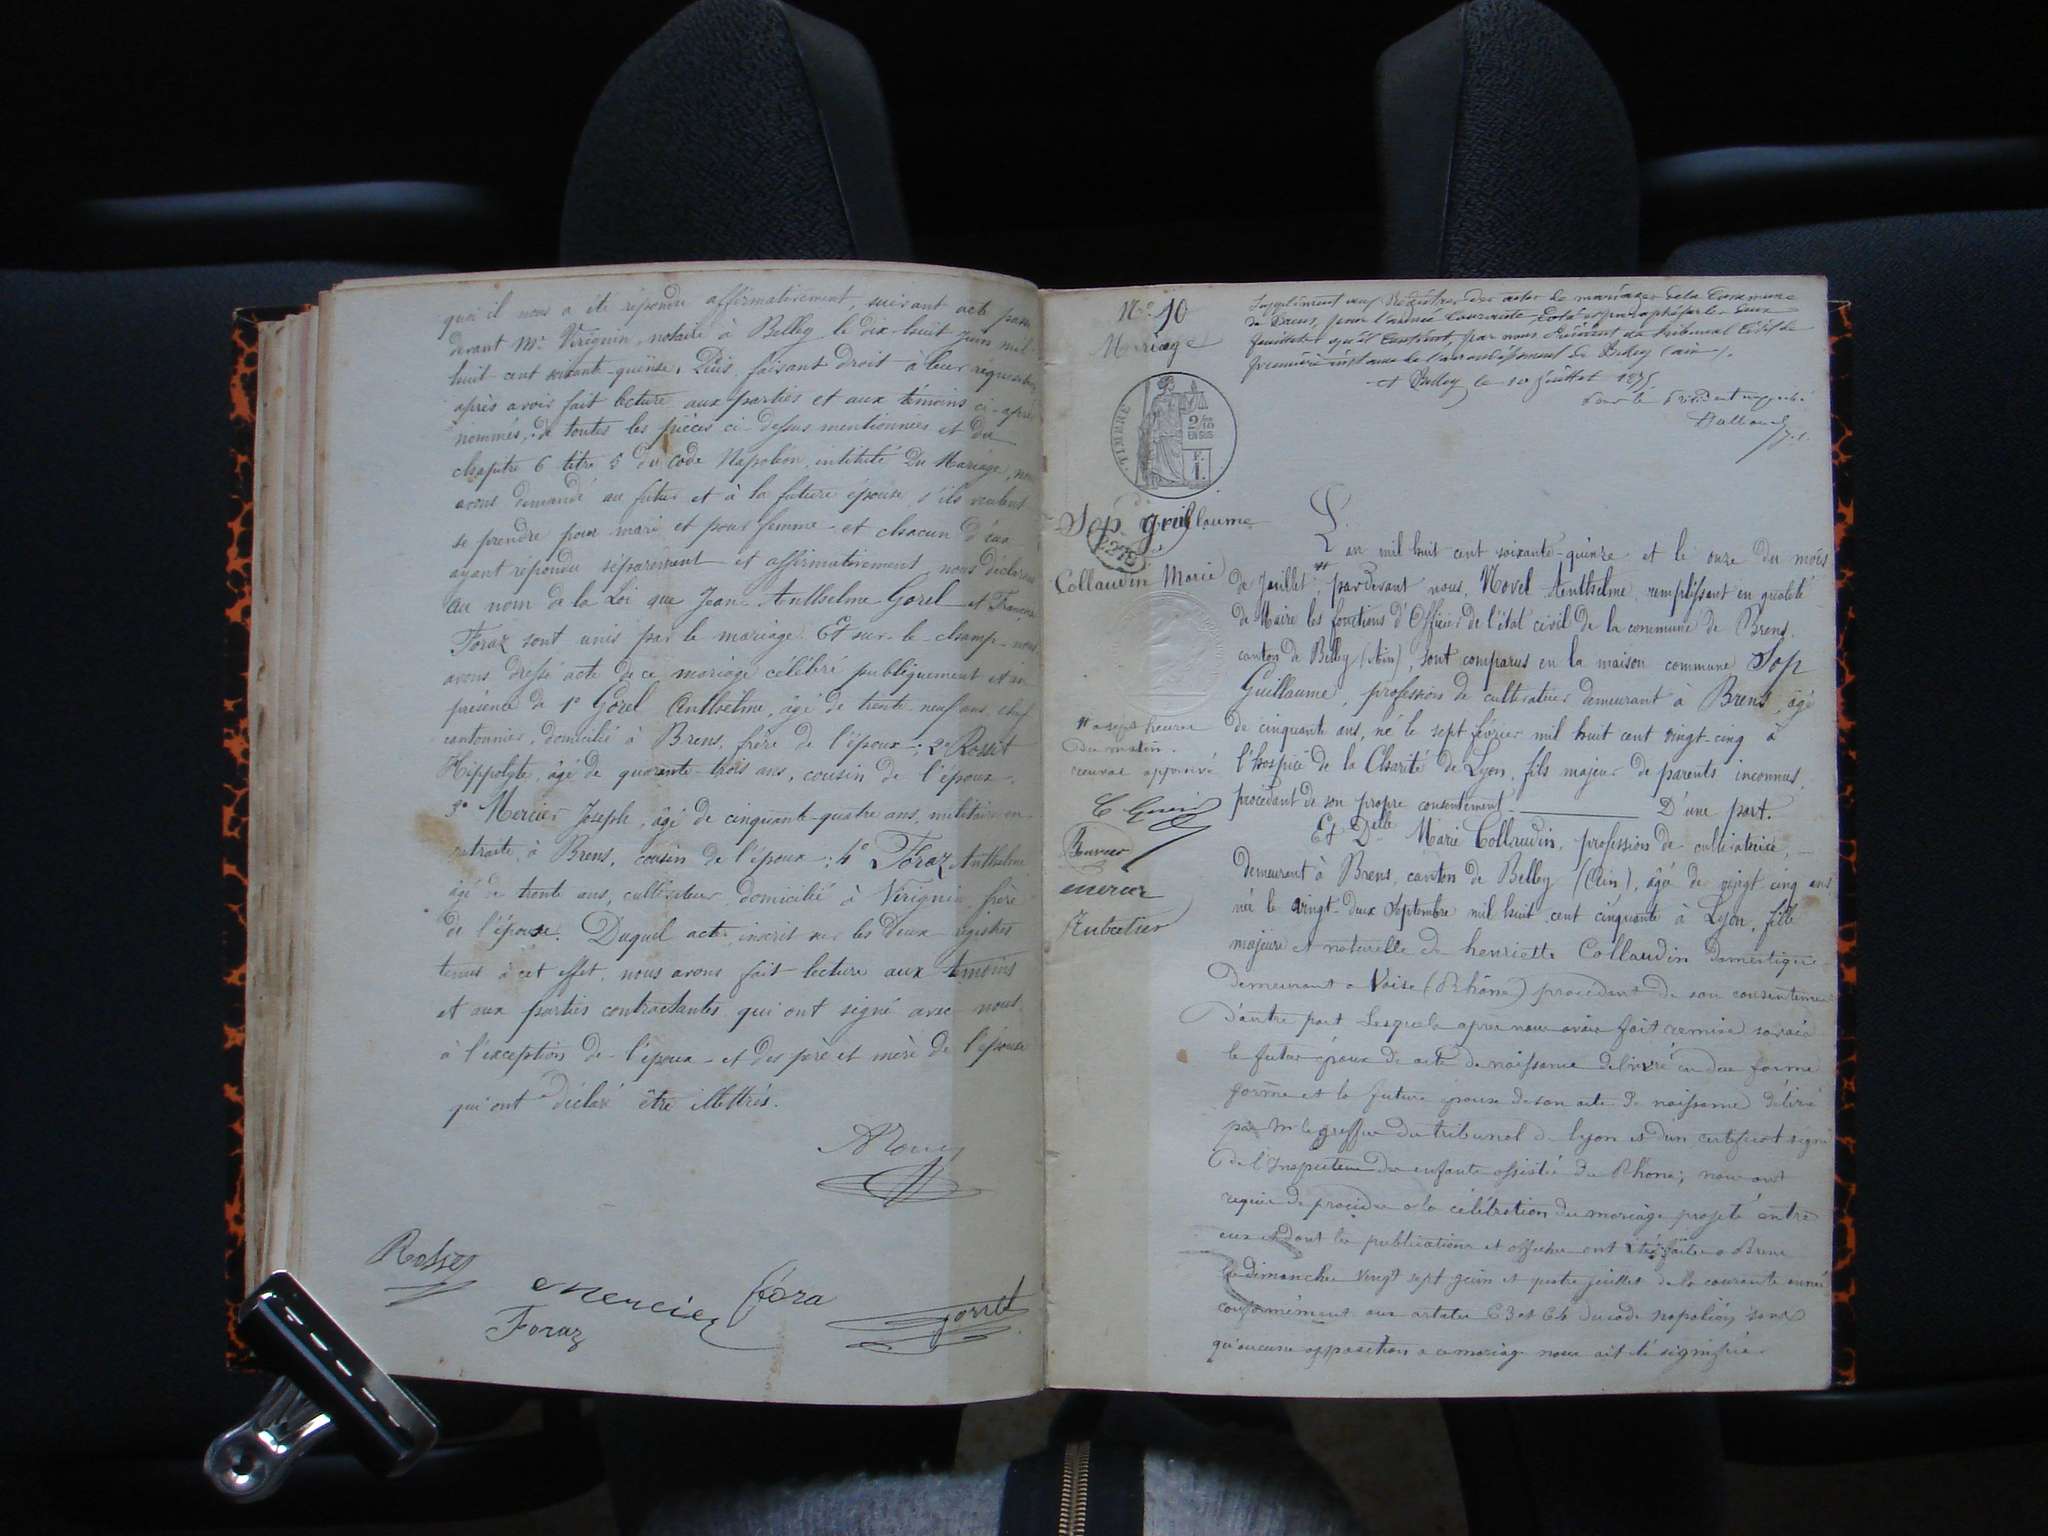 qu'il nous a été répondu affirmativement, suivant acte passé
devant Mr. Virignin, notaire à Belley le dix-huit juin mil-
huit-cent soixante-quinze. Puis, faisant droit à leur réquisition
après avoir fait lecture aux parties et aux témoins ci-après
nommés, de toutes les pièces ci-dessus mentionnées et du
chapitre 6 titre 5 du Code Napoléon, intitulé Du Mariage, nous
avons demandé au futur et à la future épouse s'ils veulent
se prendre pour mari et pour femme et chacun d'eux
ayant répondu séparément et affirmativement, nous déclarons
au nom de la Loi que Jean Anthelme Gorel et Françoise
Foraz sont unis par le mariage. Et sur-le-champ nous
avons dressé acte de ce mariage célébré publiquement et en
présence de 1° Gorel Anthelme, âgé de trente-neuf ans, chef
cantonnier, domicilié à Brens, frère de l'époux; 2° Rosset
Hippolyte, âgé de quarante-trois ans, cousin de l'époux.
3° Mercier Joseph, âgé de cinquante-quatre ans, militaire en
retraite, à Brens, cousin de l'époux; 4° Foraz Anthelme
âgé de trente ans, cultivateur domicilié à Virignin, frère
de l'épouse. Duquel acte, inscrit sur les deux registres
tenus à cet effet, nous avons fait lecture aux témoins
et aux parties contractantes qui ont signé avec nous
à l'exception de l'époux et des père et mère de l'épouse
qui ont déclaré être illettrés.
Rosset
Mercier
Fora
Foraz
Gorret
No. 10
Mariage
TIMBRE
2/10
EN SUS
F.
1.
Sop Guillaume
Collaudin Marie
# à sept heures
du matin.
renvoi approuvé
Bouvier
Mercier
Supplément aux Régistres des actes de mariages de la Commune
de Brens, pour l'année Courante, Coté et paraphé par les deux
feuillets qu'il Contient, par nous Président du tribunal Civil de
première instance de l'arrondissement de Belley (ain).
A Belley le 10 juillet 1875.
Pour le Président empêché
L'an mil huit cent soixante-quinze et le onze du mois
de Juillet #, pardevant nous, Novel Anthelme remplissant en qualité
de Maire les fonctions d'Officier de l'état civil de la commune de Brens,
canton de Belley (Ain), sont comparus en la maison commune Sop
Guillaume, profession de cultivateur demeurant à Brens, âgé
de cinquante ans, né le sept février mil huit cent vingt-cinq à
l'hospice de la Charité de Lyon, fils majeur de parents inconnus,
procédant de son propre consentement D'une part.
Et Delle Marie Collaudin, profession de cultivatrice,
demeurant à Brens, canton de Belley (Ain), âgée de vingt cinq ans
née le vingt-deux Septembre mil huit cent cinquante à Lyon, fille
majeure et naturelle de henriette Collaudin domestique
demeurant a Vaise (Rhône) procédant de son consentement
D'autre part Lesquels après nous avoir fait remise savoir
le futur époux de acte de naissance délivré en due forme
forme et la future épouse de son acte de naissance délivré
par Mr le greffier du tribunal de lyon et d'un certificat signé
de l'Inspecteur des enfants assistés du Rhône; nous ont
requis de procéder a la célébration du mariage projeté entre
eux et dont les publications et affiches ont été faites a Brens
les dimanches vingt sept juin et quatre juillet de la courante année
conformément aux articles 63 et 64 du code napoléon sans
qu'aucune opposition a ce mariage nous ait été signifiée.